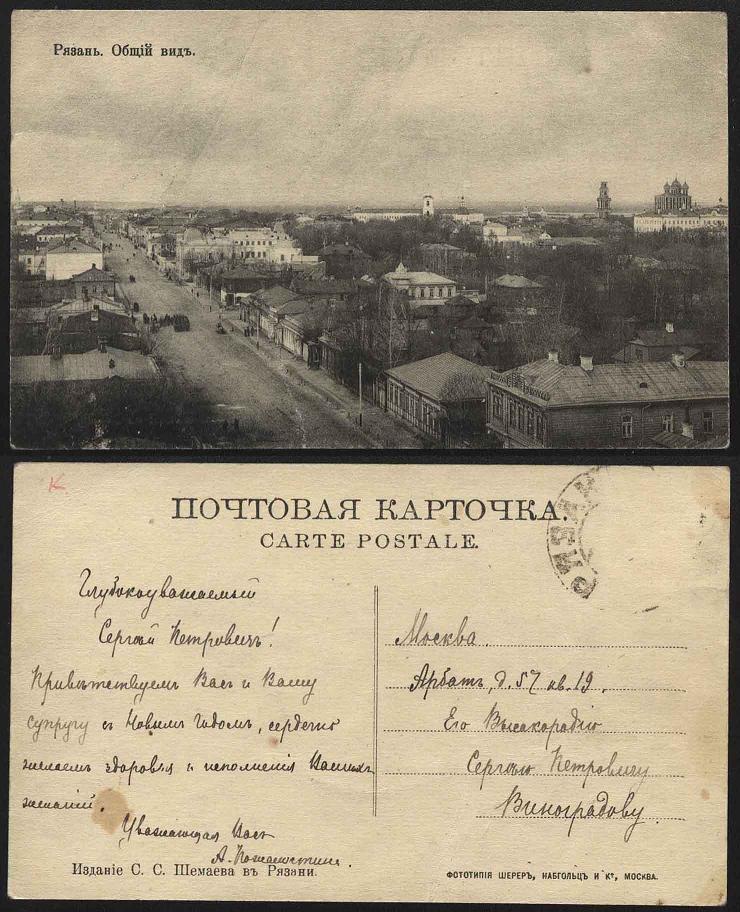 Рязань. Общій видъ.
К
ПОЧТОВАЯ КАРТОЧКА.
CARTE POSTALE.
Глубокоуважаемый
Сергѣй Петровичъ!
Привѣтствуемъ Васъ и Вашу
супругу съ Новымъ Годомъ, сердечно
желаемъ здоровья и исполненія Вашихъ
желаній.
Уважающая Васъ
А.
Москва.
Арбатъ, д. 57 кв. 19.
Его Высокородію
Сергѣю Петровичу
Виноградову.
Изданіе С. С. Шемаева въ Рязани.
ФОТОТИПІЯ ШЕРЕРЪ, НАБГОЛЬЦЪ И Кº, МОСКВА.